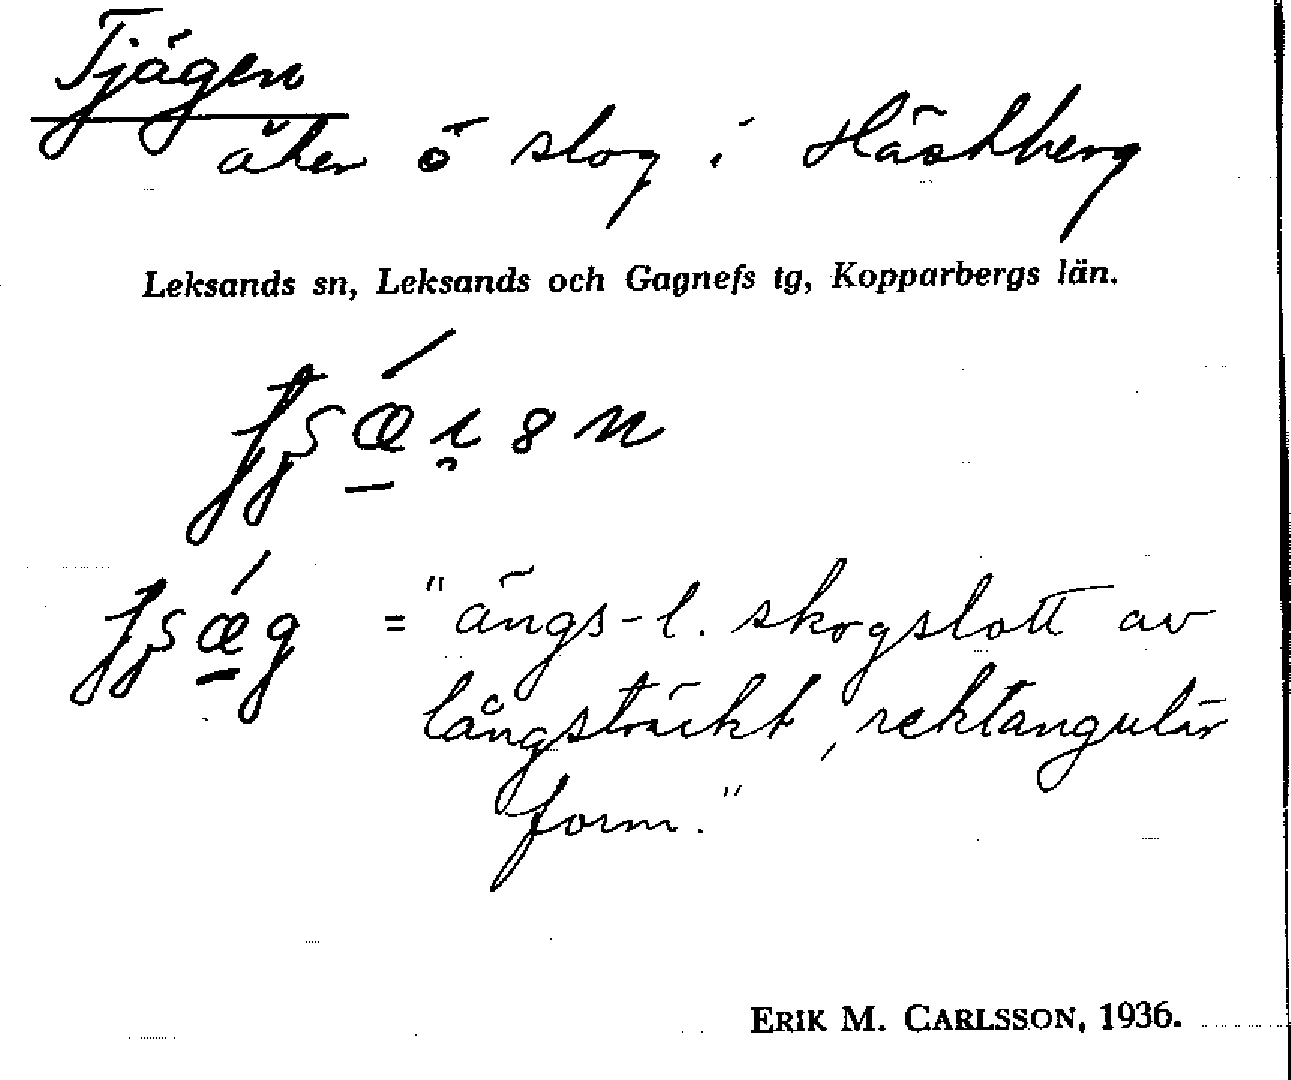 Tjägen
åker o slog i Hästberg
Leksands sn, Leksands och Gagnefs tg, Kopparbergs län.
= "ängs- l. skogslott av
långsträckt, rektangulär
form."
ERIK M. CARLSSON, 1936.